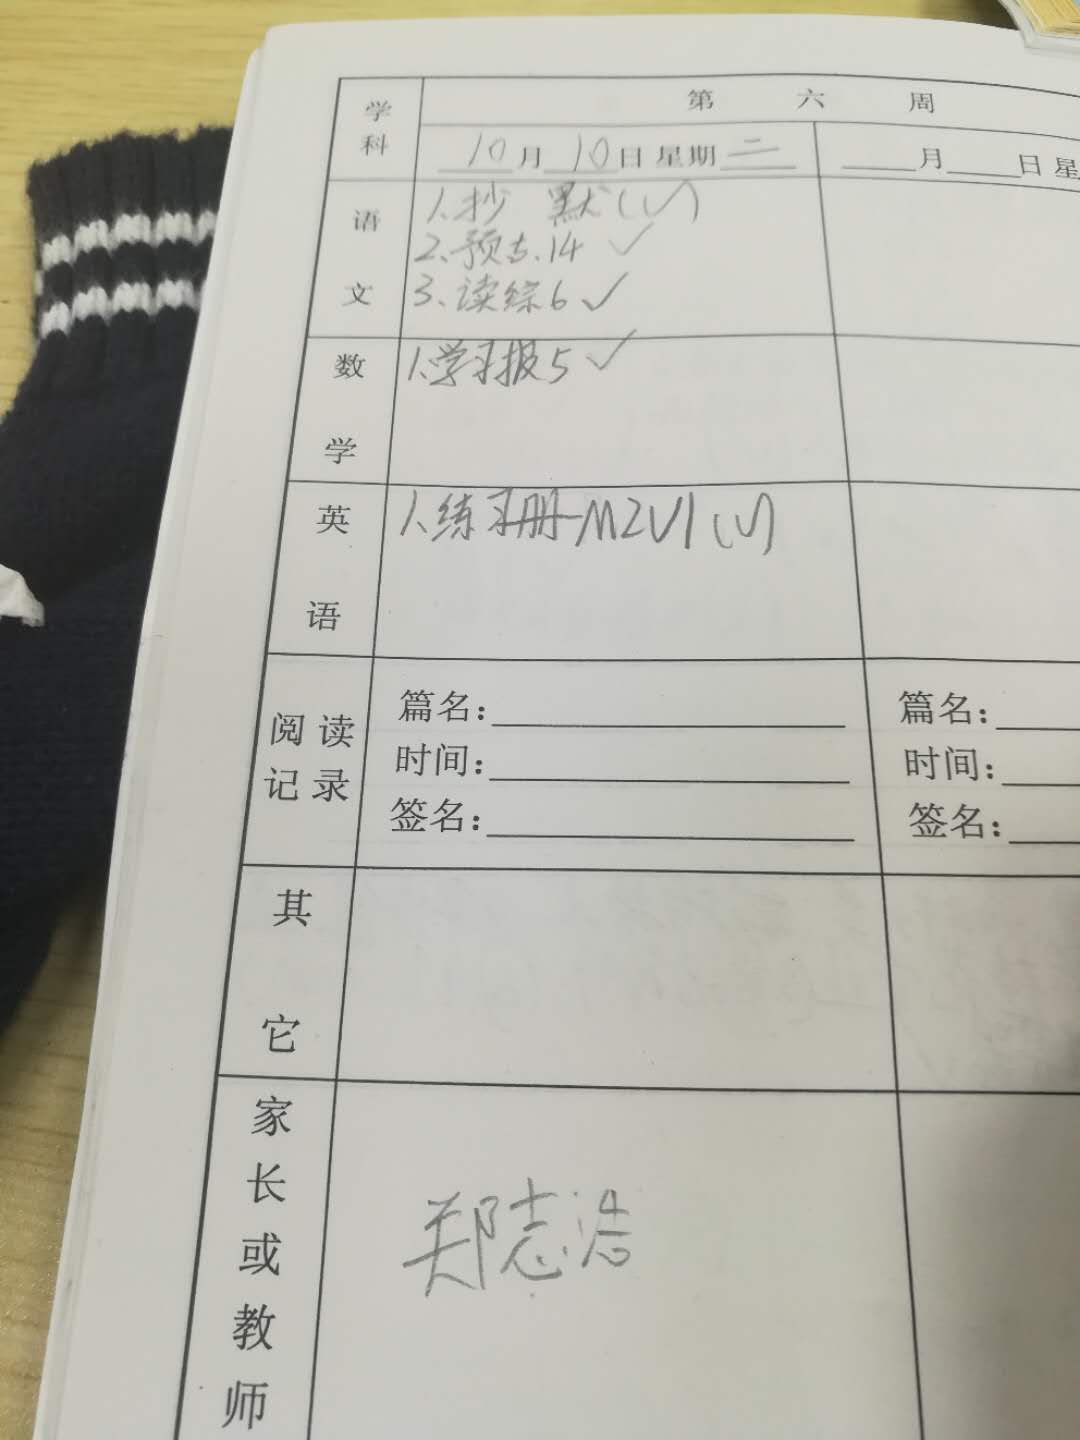 学科
第 六 周
10月10日 星期二
____月____日 星
语文
1.抄 默(√)
2.预古.14 ✓
3.读综6 ✓
数学
1.学习报5 ✓
英语
1.练习册-M2U1(√)
阅读记录
篇名:
时间:
签名:
篇名:
时间:
签名:
其它
家长或教师
郑志浩